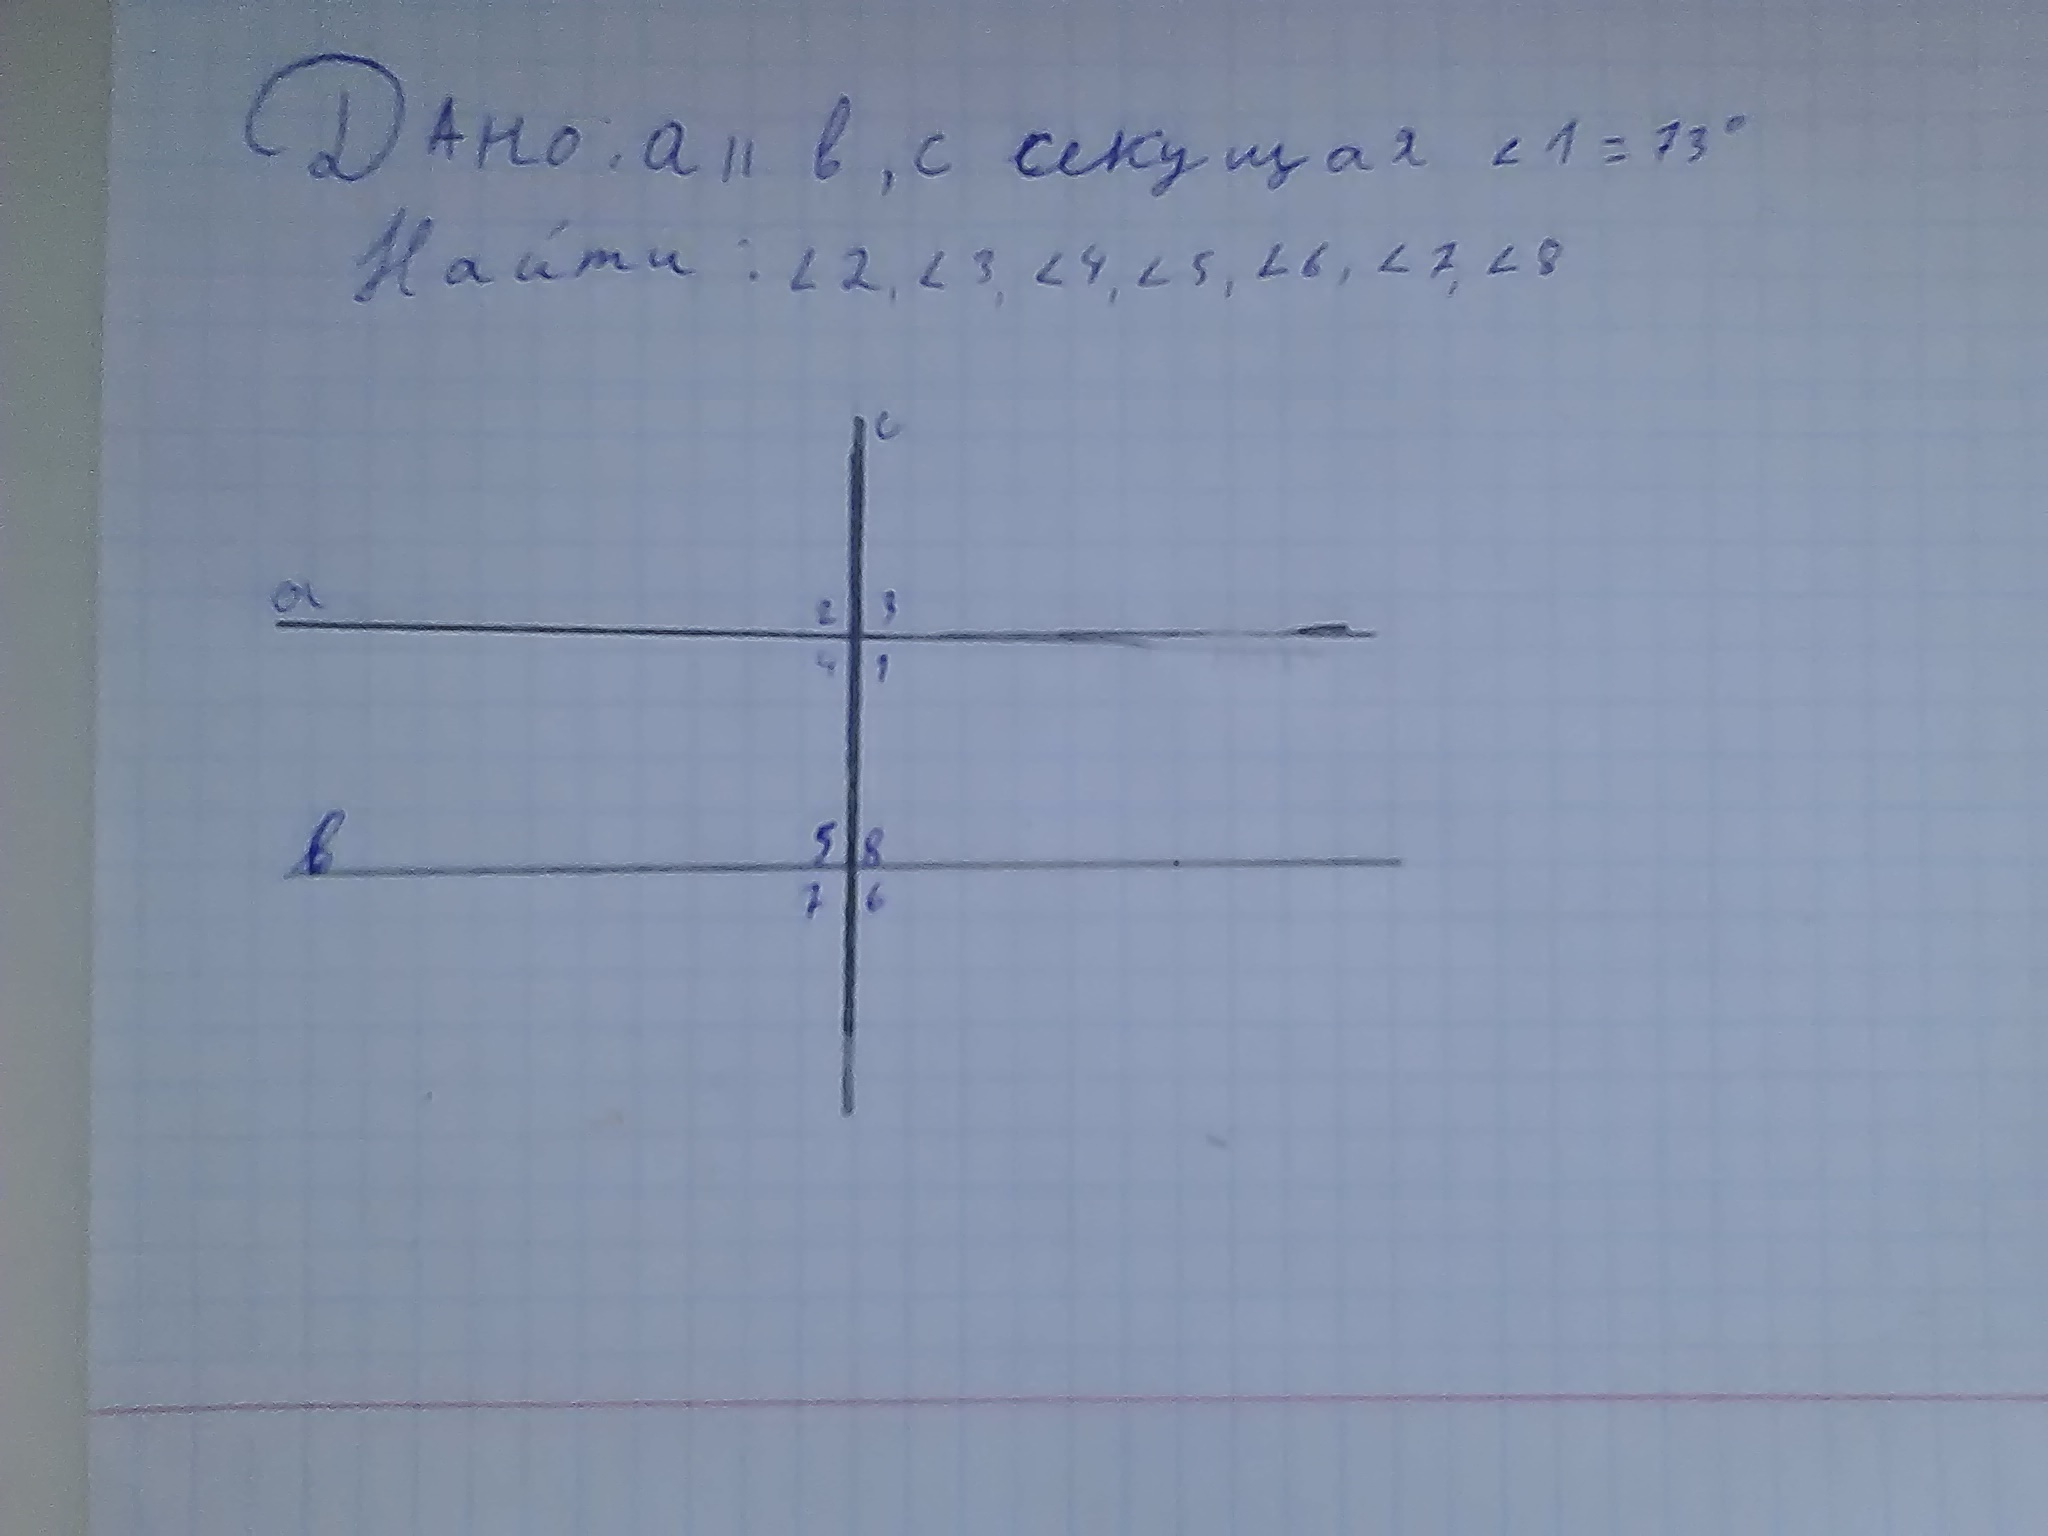 Дано: а || в, с секущая <1=73°
Найти: <2, <3, <4, <5, <6, <7, <8
с
а
2 3
4 1
в
5 8
7 6